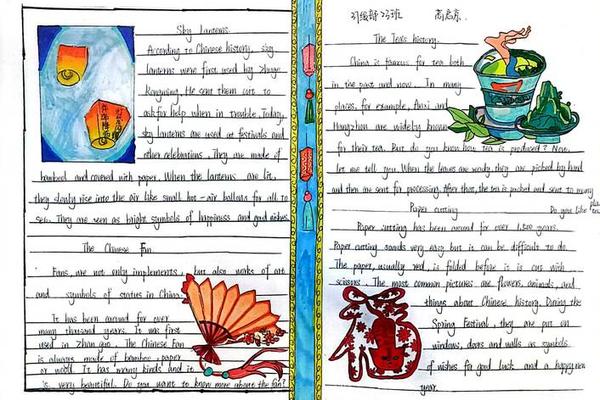 Sky Lanterns.
According to Chinese history, sky
lanterns were first used by Zhuge
Kongming. He sent them out to
ask for help when in trouble. Today,
sky lanterns are used at festivals and
other celebrations. They are made of
bamboo and covered with paper. When the lanterns are lit,
they slowly rise into the air like small hot-air balloons for all to
see. They are seen as bright symbols of happiness and good wishes.
The Chinese Fan
Fans, are not only implements, but also works of art
and symbols of status in China.
It has been around for over
many thousand years. It was first
used in Zhan guo. The Chinese Fan
is always made of bamboo, paper
or wood. It has many kinds and it
is very beautiful. Do you want to know more about the fan?
23班
The Tea's history.
China is famous for tea both
in the past and now. In many
places, for example, Anxi and
Hangzhou are widely known
for their tea. But do you know how tea is produced? Now,
let me tell you. When the leaves are ready they are picked by hand
and then are sent for processing. After that, the tea is packed and sent to many
Do you like tea
Paper cutting
Paper cutting has been around for over 1,500 years.
Paper cutting sounds very easy but it can be difficult to do.
The paper, usually red, is folded before it is cut with
scissors. The most common pictures are flowers, animals, and
things about Chinese history. During the
Spring Festival, they are put on
windows, doors and walls as symbols
of wishes for good luck and a happy new
year.